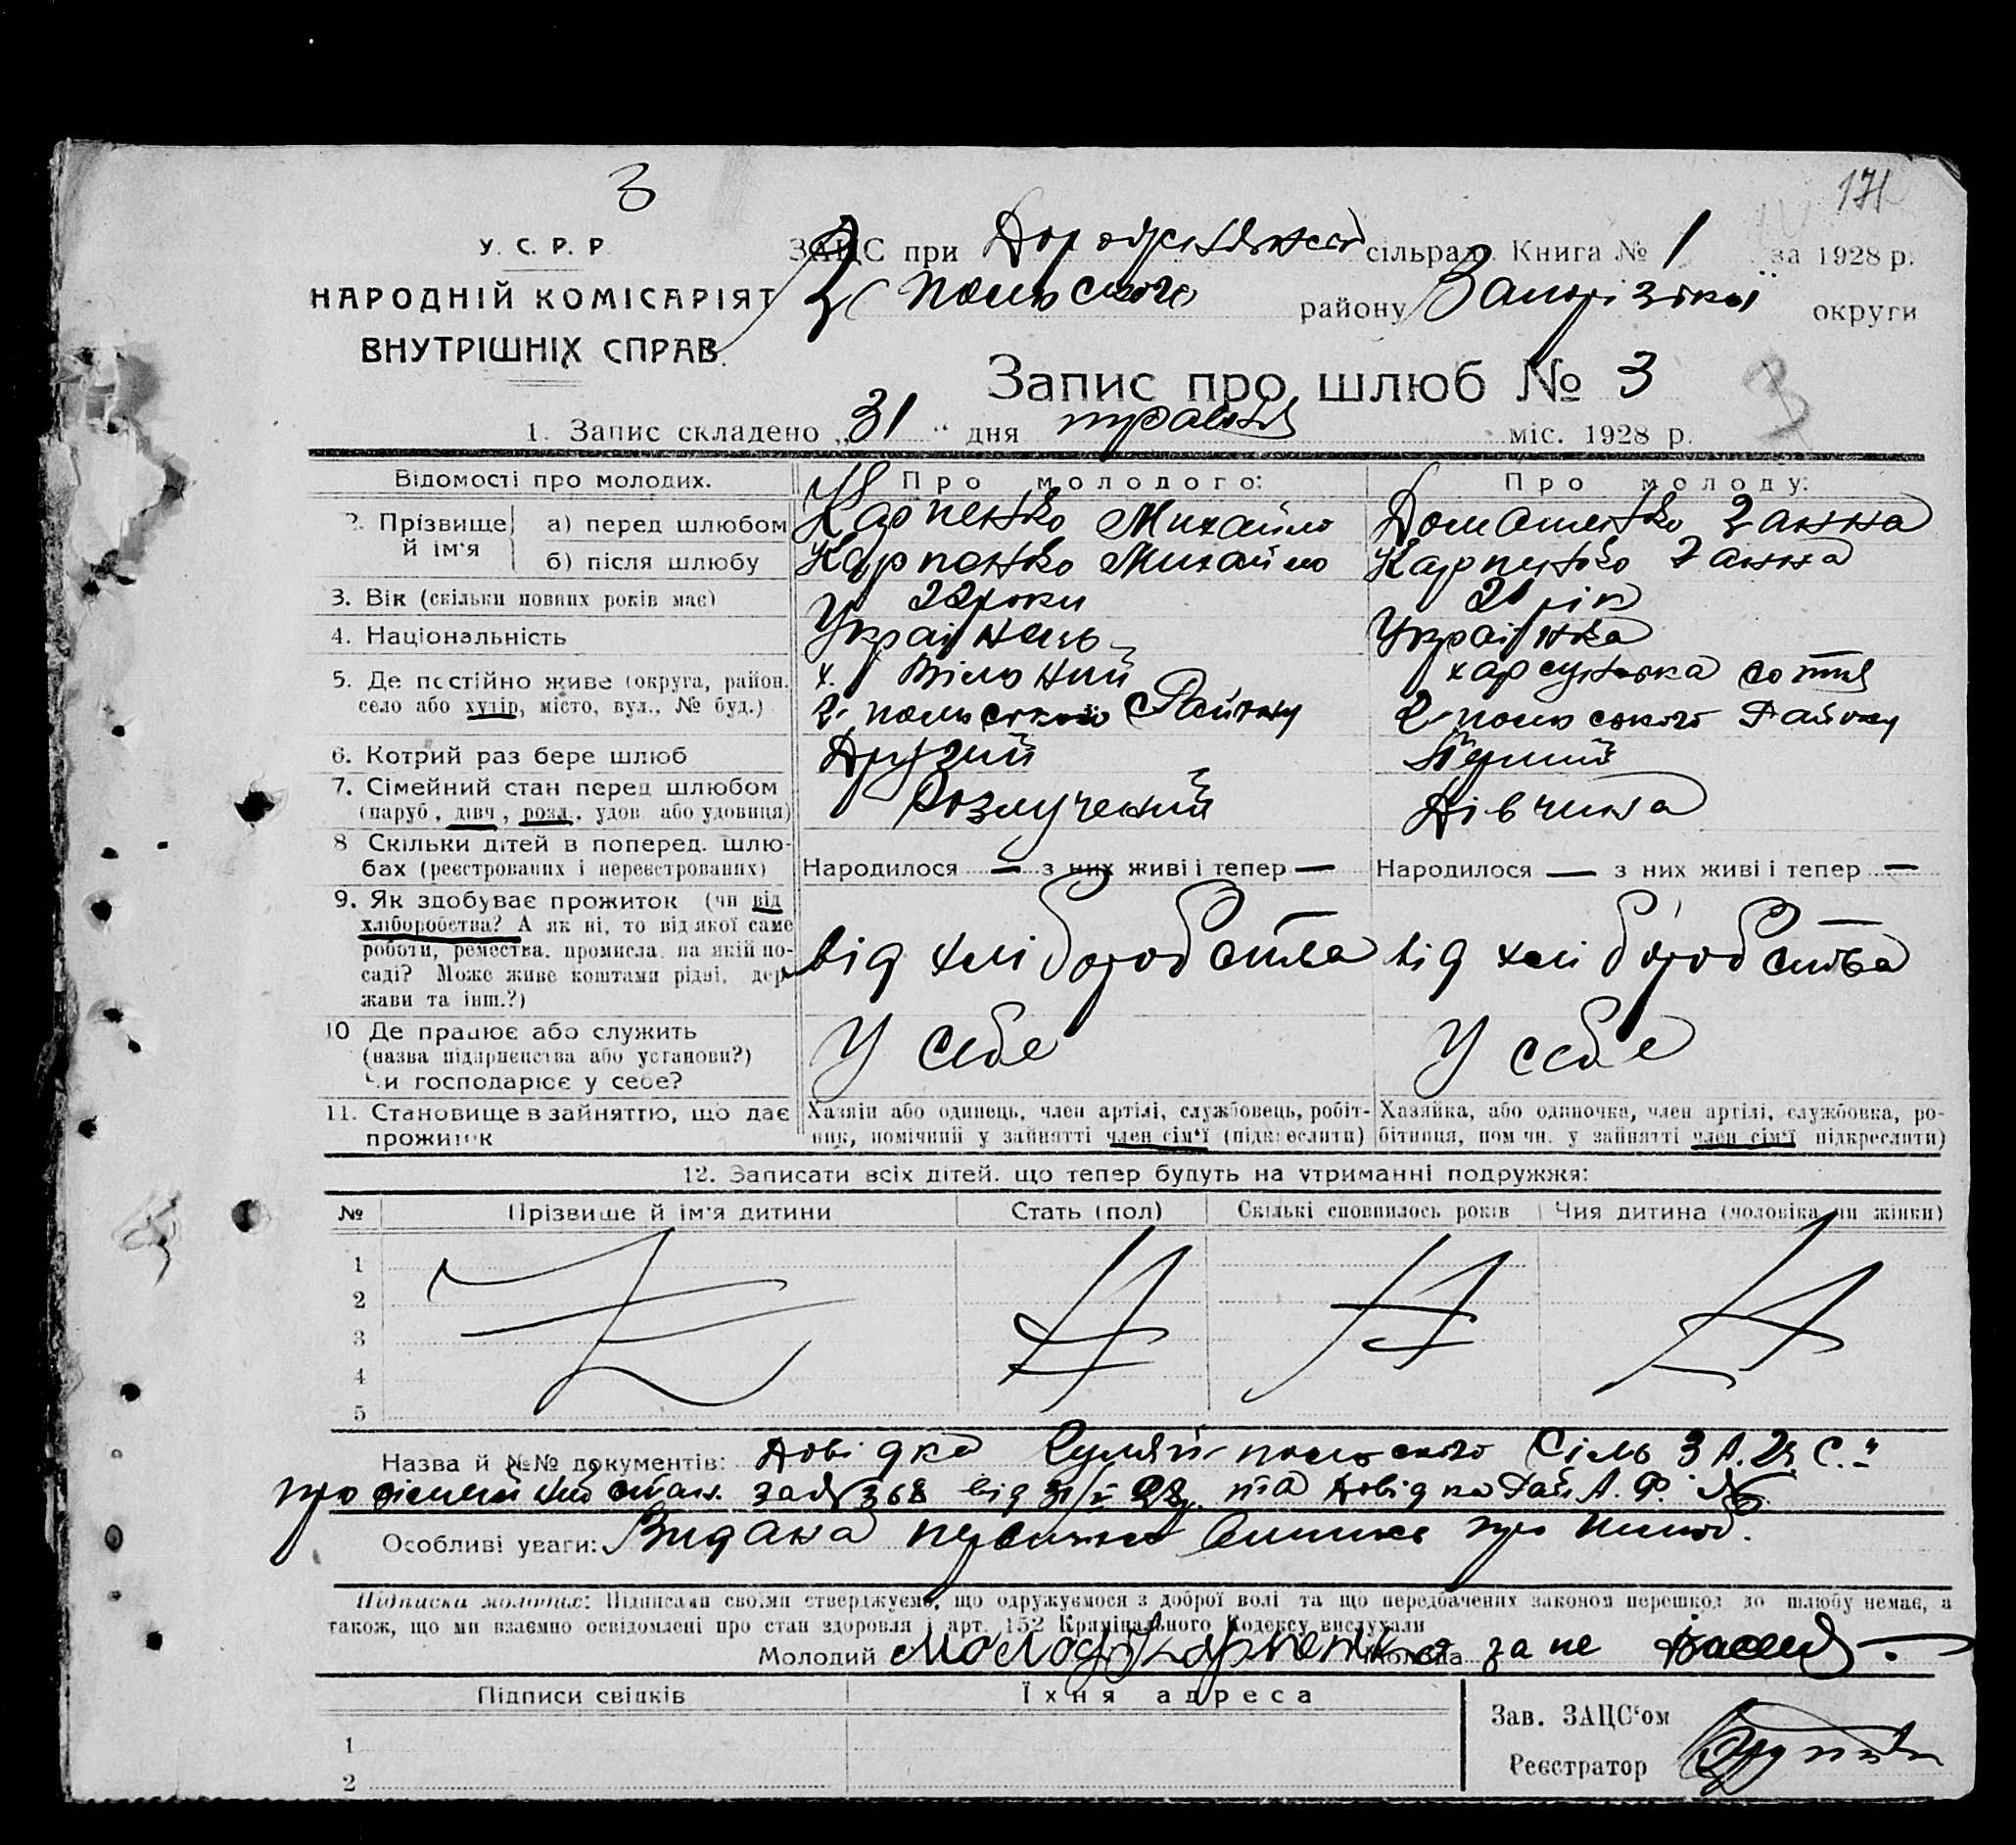 3
171
У. С. Р. Р.
НАРОДНІЙ КОМІСАРІЯТ
ВНУТРІШНІХ СПРАВ.
ЗАЦС при Дорожнянській сільрад. Книга № 1 за 1928 р.
Г. Польського району Запорізької округи
Запис про шлюб № 3
3
1. Запис складено „31“ дня травня міс. 1928 р.
Відомості про молодих. Про молодого: Про молоду:
2. Прізвище й ім'я а) перед шлюбом Карпенко Михайло Домашенко Ганна
б) після шлюбу Карпенко Михайло Карпенко Ганна
3. Вік (скільки повних років має) 22 роки 21 рік
4. Національність Українець Українка
5. Де постійно живе (округа, район, х. Вільний сотня
село або хутір, місто, вул., № буд.) Г-польського Району Г-польського Району
6. Котрий раз бере шлюб Другий Перший
7. Сімейний стан перед шлюбом
(паруб, дівч, розл, удов. або удовиця) Розлучений Дівчина
8 Скільки дітей в поперед. шлю-
бах (реєстрованих і нереєстрованих) Народилося — з них живі і тепер — Народилося — з них живі і тепер —
9. Як здобуває прожиток (чи від
хліборобства? А як ні, то від якої саме
роботи, ремества, промисла, на якій по-
саді? Може живе коштами рідні, дер- від хліборобства від хліборобства
жави та інш.?)
10 Де працює або служить
(назва підприємства або установи?) У себе У себе
Чи господарює у себе?
11. Становище в зайняттю, що дає Хазяїн або одинець, член артілі, службовець, робіт- Хазяйка, або одиночка, член артілі, службовка, ро-
прожиток ник, помічний у зайнятті член сім'ї (підкреслити) бітниця, помічн. у зайнятті член сім'ї підкреслити)
12. Записати всіх дітей, що тепер будуть на утриманні подружжя:
№ Прізвище й ім'я дитини Стать (пол) Скількі сповнилось років Чия дитина (чоловіка чи жінки)
1
2
3
4
5
Назва й №№ документів: Довідка Гуляй-польського Сіль
про сімейний стан. за № 368 від 31/V 28 р. та довідка
Особливі уваги: Видана первична випись про шлюб.
Підписка молодих: Підписами своїми стверджуємо, що одружуємося з доброї волі та що передбачених законом перешкод до шлюбу немає, а
також, що ми взаємно освідомлені про стан здоровля і арт. 152 Кримінального Кодексу вислухали
Молодий Карпенко Молода за не
Підписи свідків Їхня адреса
Зав. ЗАЦС'ом
1
Реєстратор
2